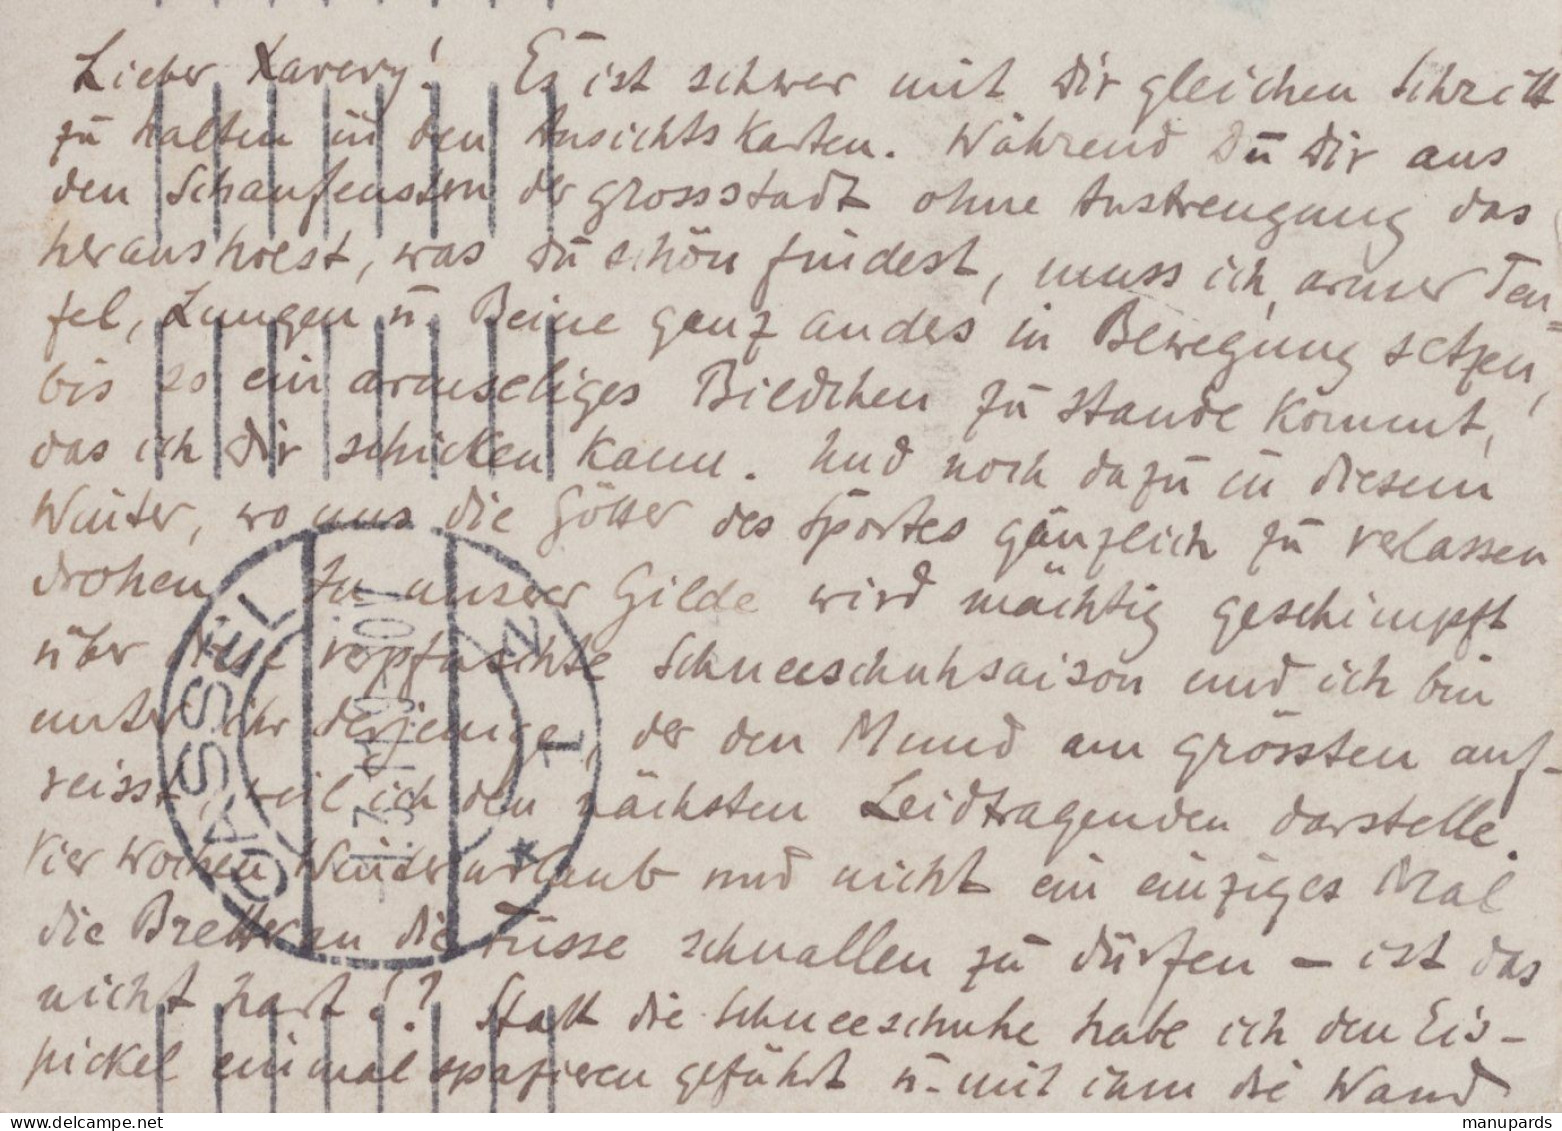 Lieber Xavery! Es ist schwer mit Dir gleichen Schritt
zu halten in den Ansichtskarten. Während Du Dir aus
den Schaufenstern der Grossstadt ohne Anstrengung das
heraus holst, was Du schön findest, muss ich, armer Teu=
fel, Lungen u. Beine ganz anders in Bewegung setzen,
bis so ein armseliges Bildchen zu stande kommt,
das ich Dir schicken kann. Und noch dazu in diesem
Winter, wo uns die Götter des Sportes gänzlich zu verlassen
drohen. In unserer Gilde wird mächtig geschimpft
über diese verpfuschte Schneeschuhsaison und ich bin
unter ihr derjenige, der den Mund am grössten auf-
reisst, weil ich den nächsten Leidtragenden darstelle.
Vier Wochen Winterurlaub und nicht ein einziges Mal
die Bretter an die Füsse schnallen zu dürfen – ist das
nicht hart!? Statt die Schneeschuhe habe ich den Eis-
pickel einmal spazieren geführt u. mit ihm die Wand
CASSEL
* 1 Z
manupards - www.delcampe.net